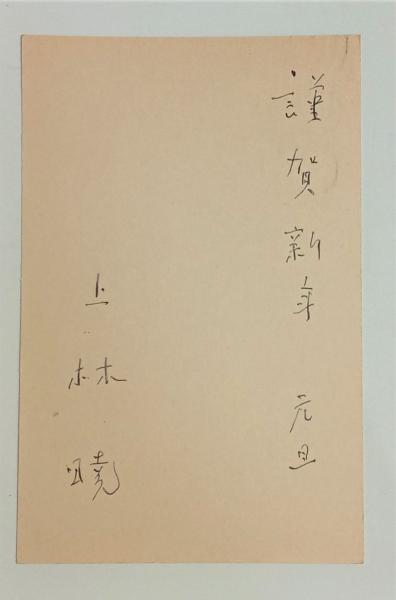 謹賀新年 元旦
上林暁